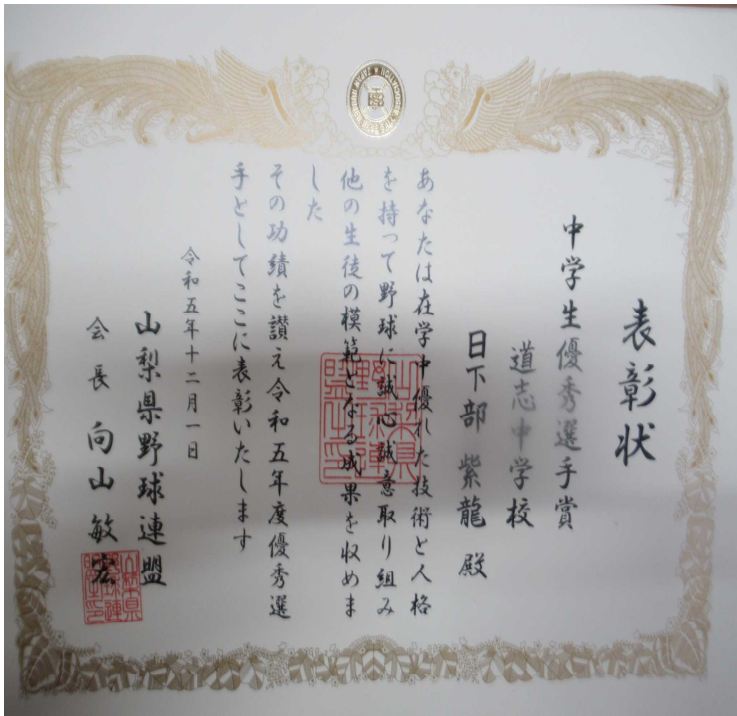 表彰状
中学生優秀選手賞
道志中学校
日下部 紫龍 殿
あなたは在学中優れた技術と人格
を持って野球に誠心誠意取り組み
他の生徒の模範となる成果を収めま
した
その功績を讃え令和五年度優秀選
手としてここに表彰いたします
令和五年十二月一日
山梨県野球連盟
会長 向山敏宏